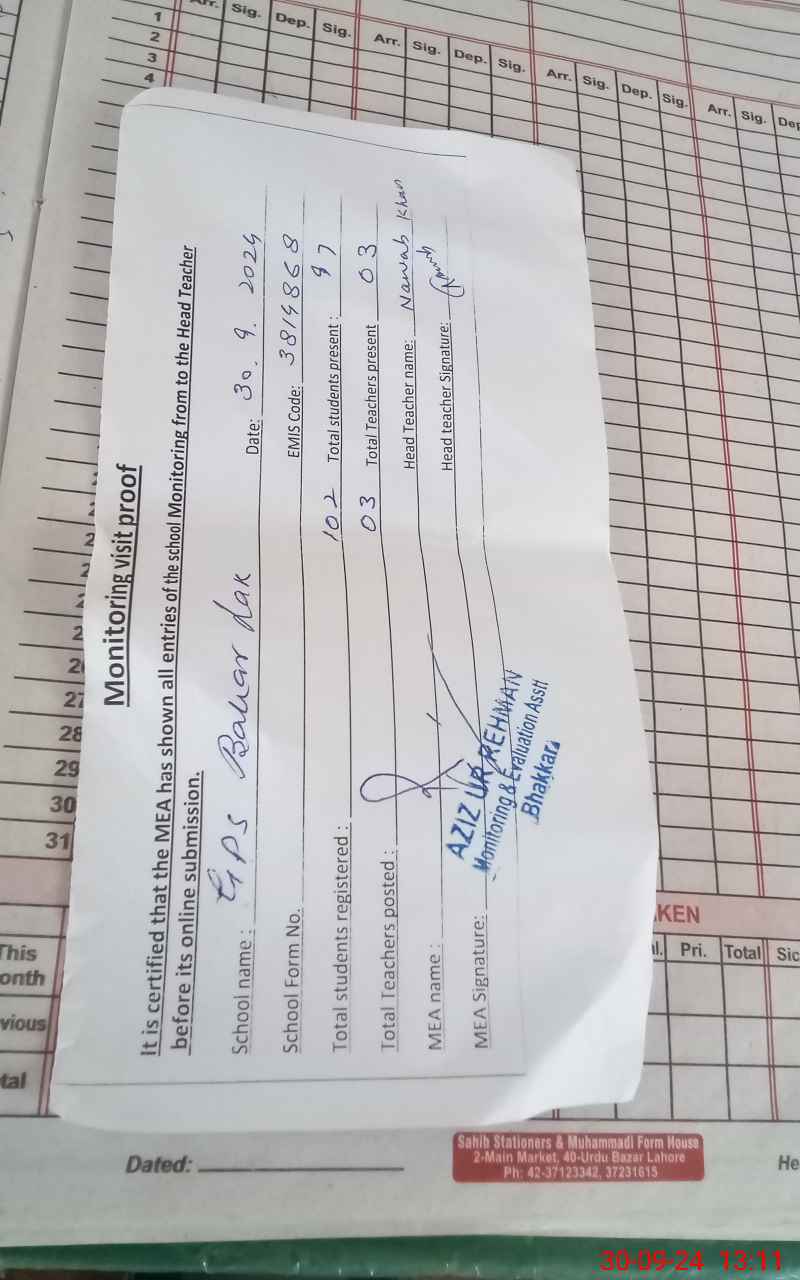 Arr. Sig. Dep. Sig. Arr. Sig. Dep. Sig. Arr. Sig. Dep. Sig. Arr. Sig. Dep
1
2
3
4
Monitoring visit proof
It is certified that the MEA has shown all entries of the school Monitoring from to the Head Teacher
before its online submission.
School name : GPS Bahar Lak Date: 30. 9. 2024
School Form No. EMIS Code: 3814868
Total students registered : 102 Total students present : 97
Total Teachers posted : 03 Total Teachers present 03
MEA name : Head Teacher name: Nawab Khan
MEA Signature: Head teacher Signature:
AZIZ UR REHMAN
Monitoring & Evaluation Asstt
Bhakkar
27
28
29
30
31
KEN
This
onth
l. Pri. Total Sic
vious
tal
Dated:
He
Sahib Stationers & Muhammadi Form House
2-Main Market, 40-Urdu Bazar Lahore
Ph: 42-37123342, 37231615
30-09-24 13:11